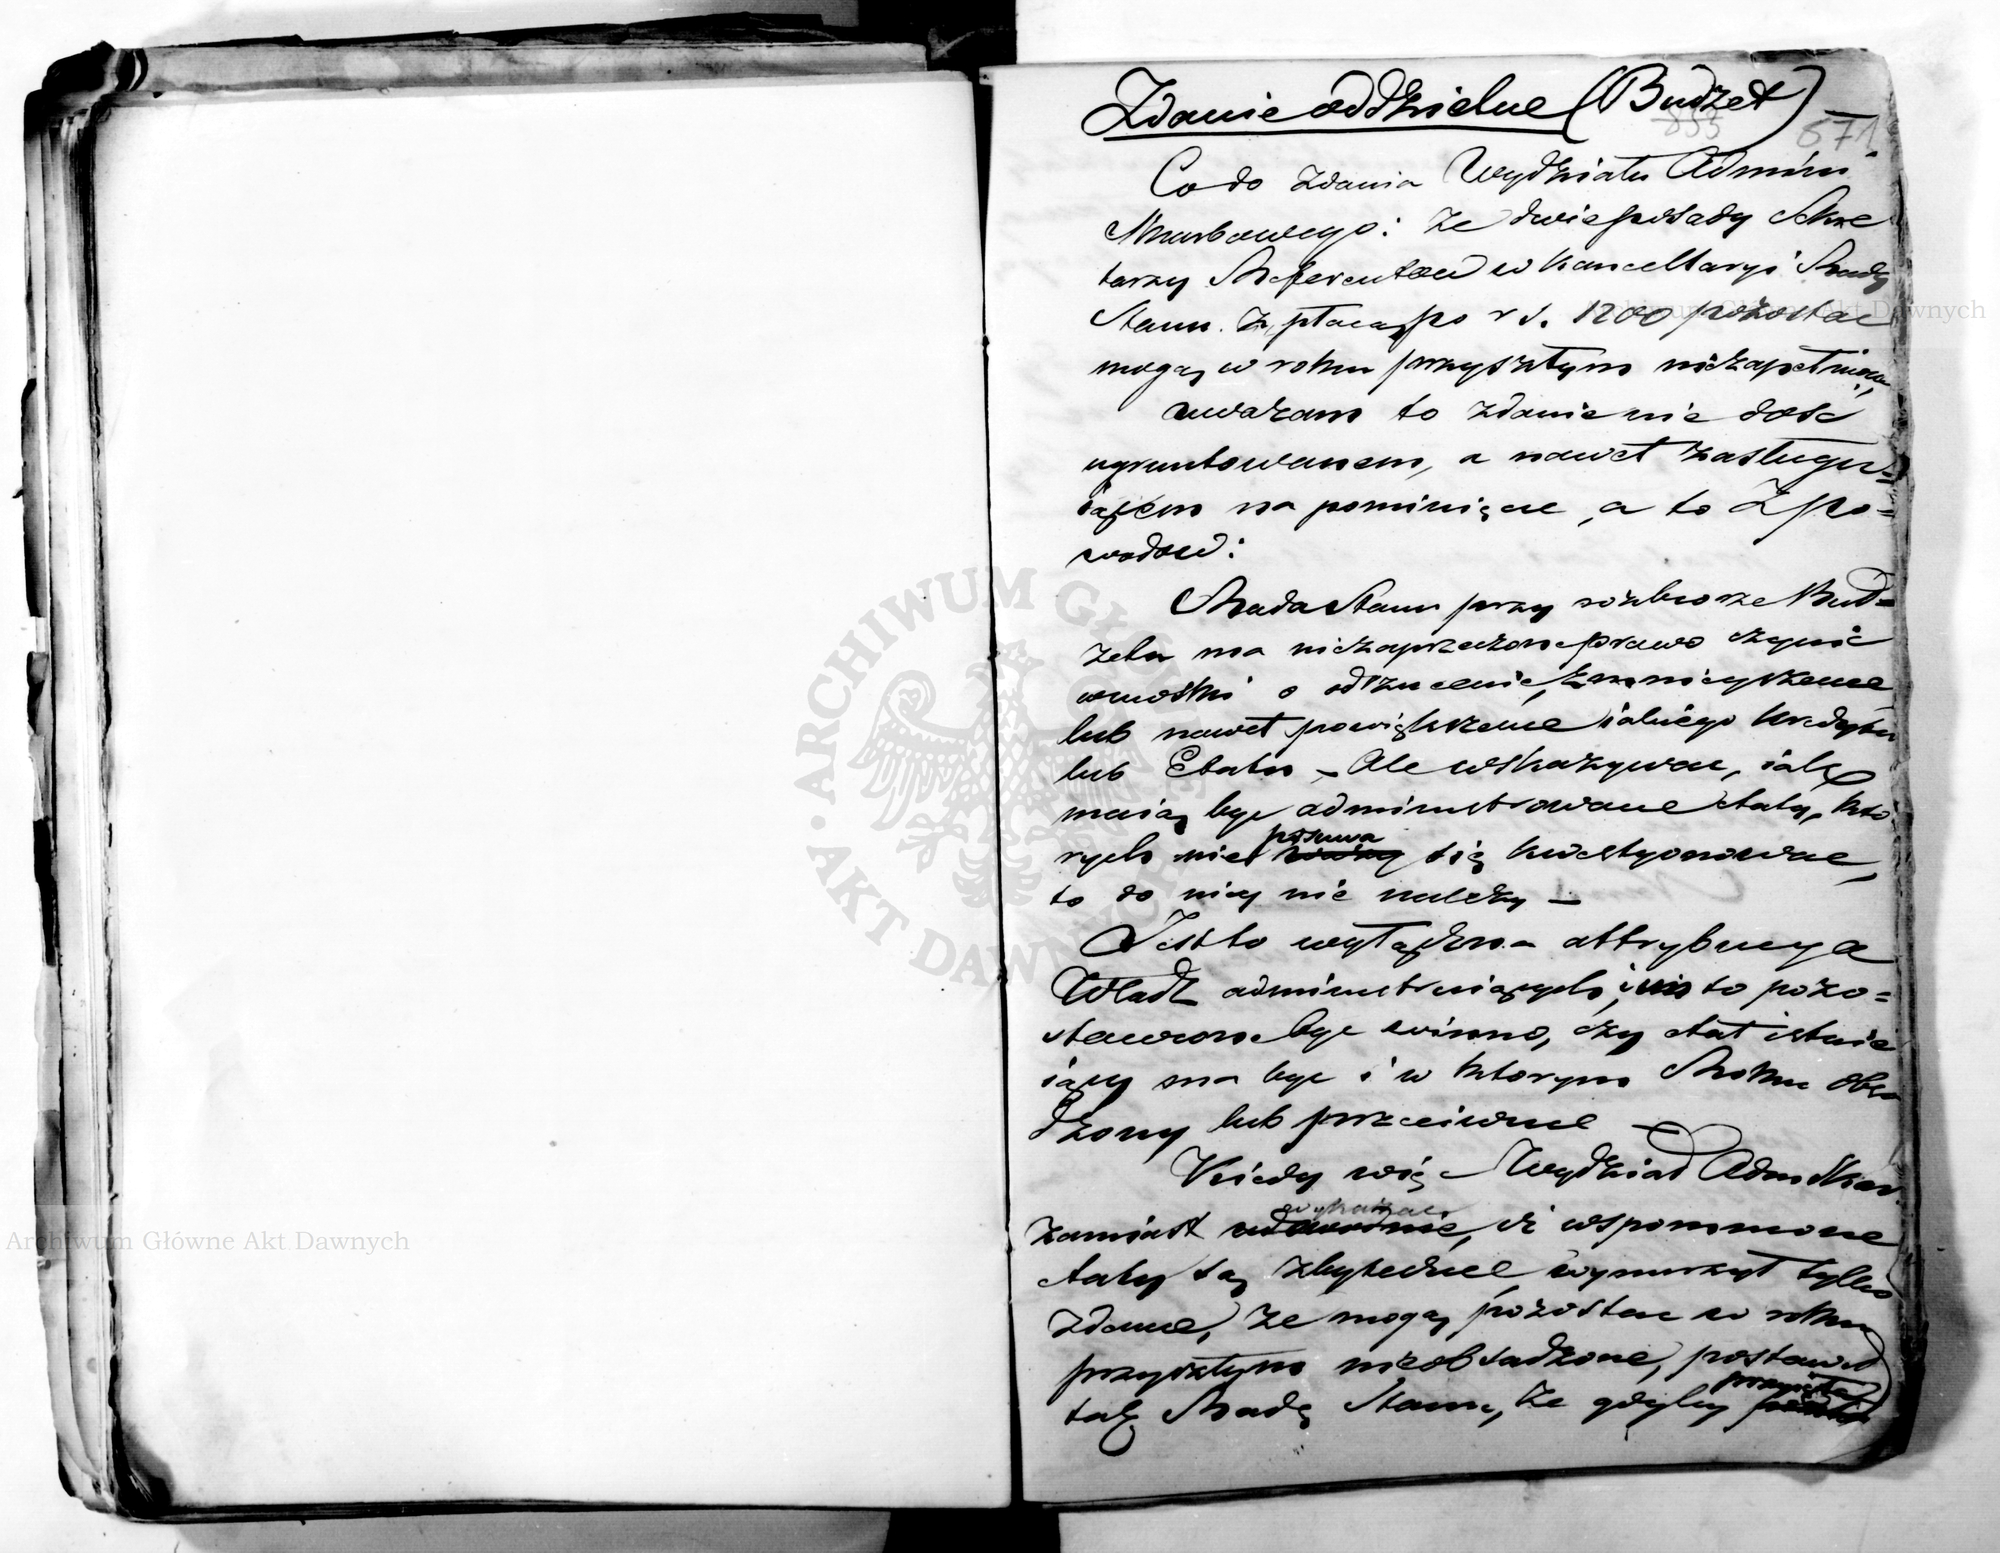 Zdanie oddzielne (Budżet) —
853
671
Co do zdania Wydziału Admini
Skarbowego: że dwie posady Sekre
tarzy Referentów w Kancellaryi Rady
Stanu. z płacą po r s. 1200 pozostać
mogą w roku przyszłym niezapełnione,
uważam to zdanie nie dość
ugruntowanem, a nawet zasługu-
iącem na pominięcie, a to z po-
wodów:
Rada Stanu przy rozbiorze Bud-
żetu ma niezaprzeczone prawo czynić
wnioski o odrzucenie, zmnieyszenie
lub nawet powiększenie iakiego kredytu
lub Etatu – Ale wskazywać, iak
maią być administrowane etaty, któ
rych nie posuwa się kwestyonować,
to do niey nie należy —
Jest to wyłączna attrybucya
Władz administruiących, im to pozo-
stawione być winno, czy etat istnie
iący ma być i w którym Roku obsa
dzony lub przeciwnie —
Kiedy więc Wydział Adm Skar
zamiast wykazać, iż wspomnione
etaty są zbyteczne, wynurzył tylko
zdanie, że mogą pozostać w roku
przyszłym nieobsadzone, postawił
tak Radę Stanu, że gdyby przyięta
Archiwum Główne Akt Dawnych
Archiwum Główne Akt Dawnych
ARCHIWUM GŁÓWNE AKT DAWNYCH